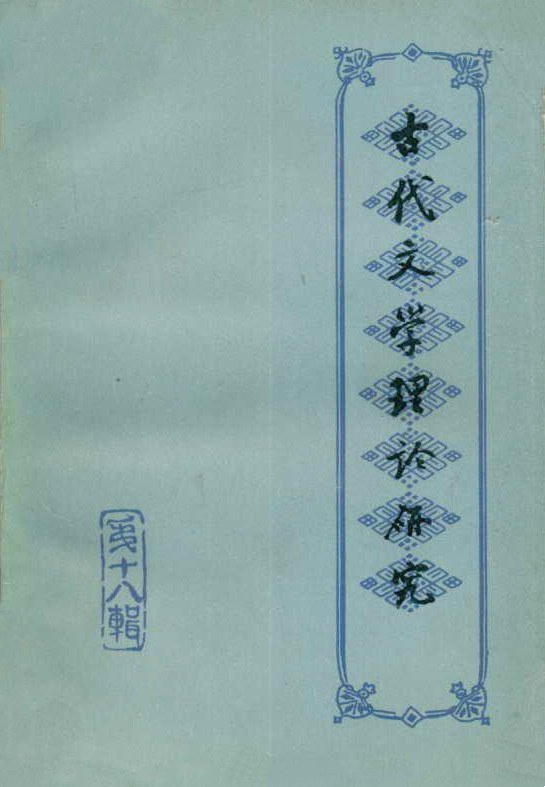 古代文学理论研究
第十八辑